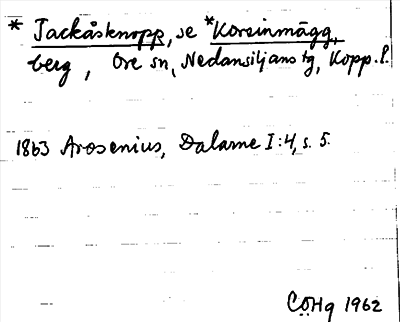 * Jackåsknopp, se *Korsinmägg,
berg, Ore sn, Nedansiljans tg, Kopp. l.
1863 Arosenius, Dalarne I:4, s. 5.
CÖHg 1962